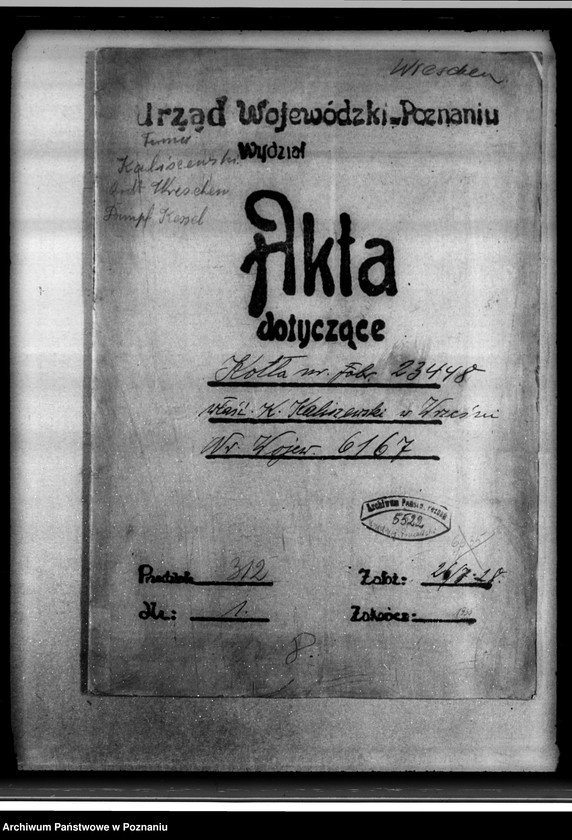 Wreschen
Urząd Wojewódzki-Poznaniu
Wydział
Firma
Kaliszewski
Wreschen
Dampf Kessel
Akta
dotyczące
Kotła nr. fabr. 23448
właśc. K. Kaliszewski w Wrześni
Nr. Wojew. 6167
Archiwum Państw.
5522
Przedziałk 312
Założ: 26/7-28.
Nr.: 1.
Zakończ:
8.
Archiwum Państwowe w Poznaniu